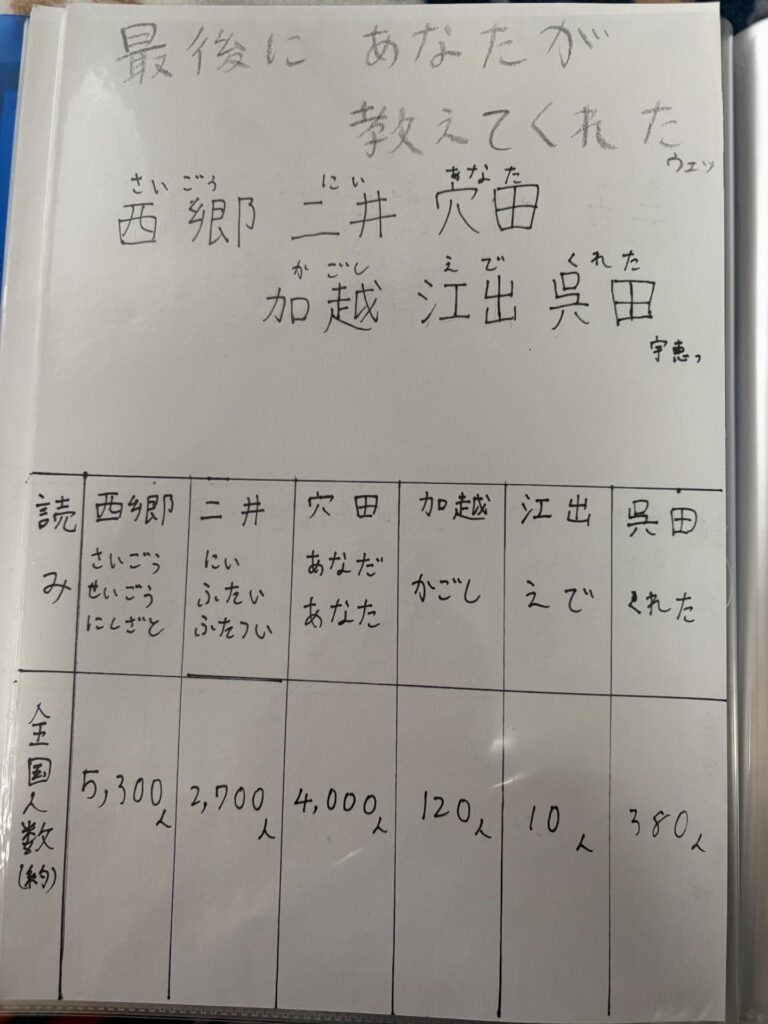 最後に あなたが
教えてくれた
ウェッ
さいごう にい あなた
西郷 二井 穴田
かごし えで くれた
加越 江出 呉田
宇恵っ
読み 西郷 二井 穴田 加越 江出 呉田
さいごう にい あなだ かごし えで くれた
せいごう ふたい あなた
にしざと ふたつい
全国人数(約) 5,300人 2,700人 4,000人 120人 10人 380人